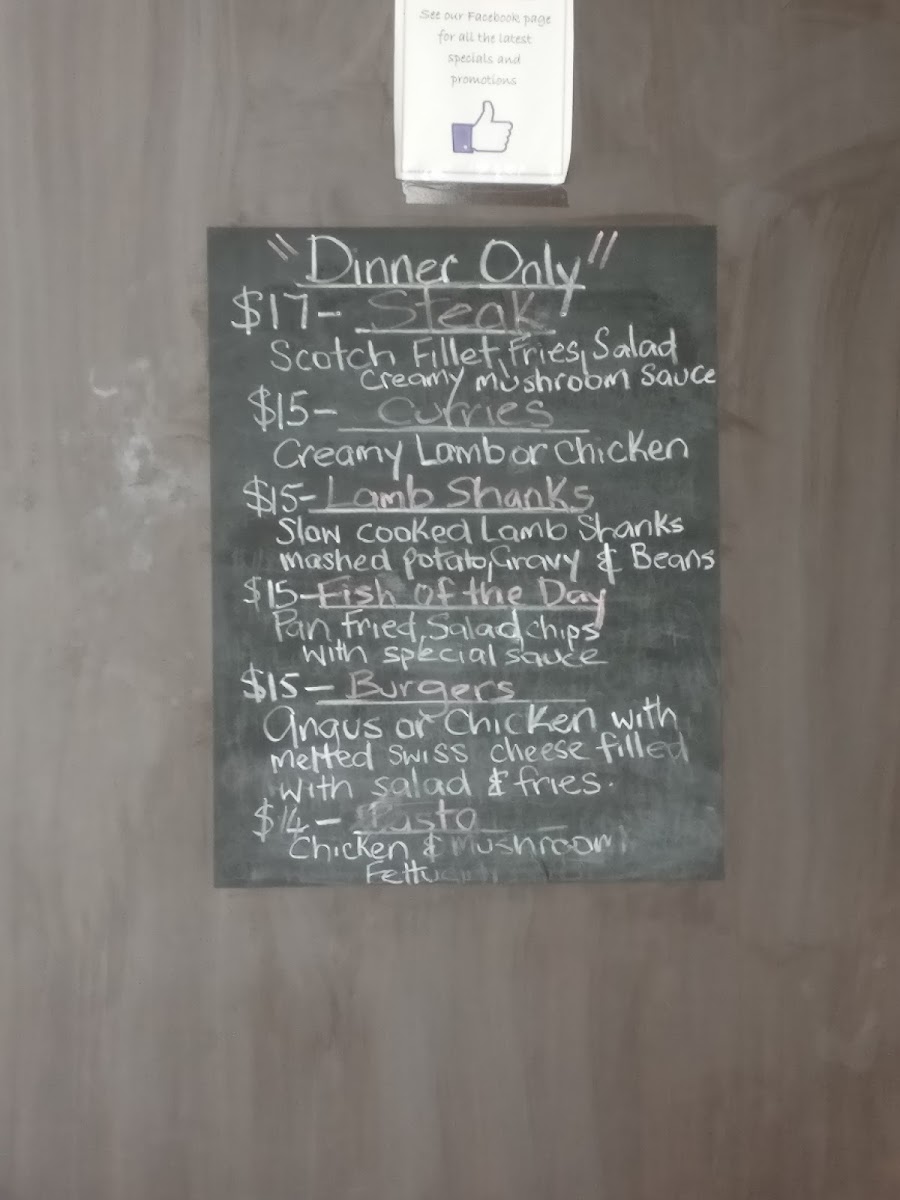 See our Facebook page
for all the latest
specials and
promotions
"Dinner Only"
$17- Steak
Scotch Fillet, Fries, Salad
Creamy mushroom Sauce
$15- Curries
Creamy Lamb or Chicken
$15- Lamb Shanks
Slow cooked Lamb Shanks
mashed potato, Gravy & Beans
$15- Fish of the Day
Pan fried, Salad, chips
with special sauce
$15- Burgers
Angus or Chicken with
melted swiss cheese filled
with salad & fries.
$14- Pasta
Chicken & Mushroom